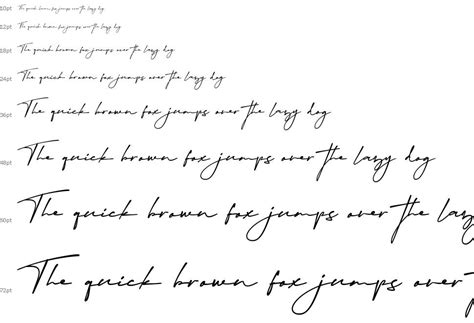 10pt The quick brown fox jumps over the lazy dog
12pt The quick brown fox jumps over the lazy dog
18pt The quick brown fox jumps over the lazy dog
24pt The quick brown fox jumps over the lazy dog
36pt The quick brown fox jumps over the lazy dog
48pt The quick brown fox jumps over the lazy dog
60pt The quick brown fox jumps over the lazy
72pt The quick brown fox jumps over